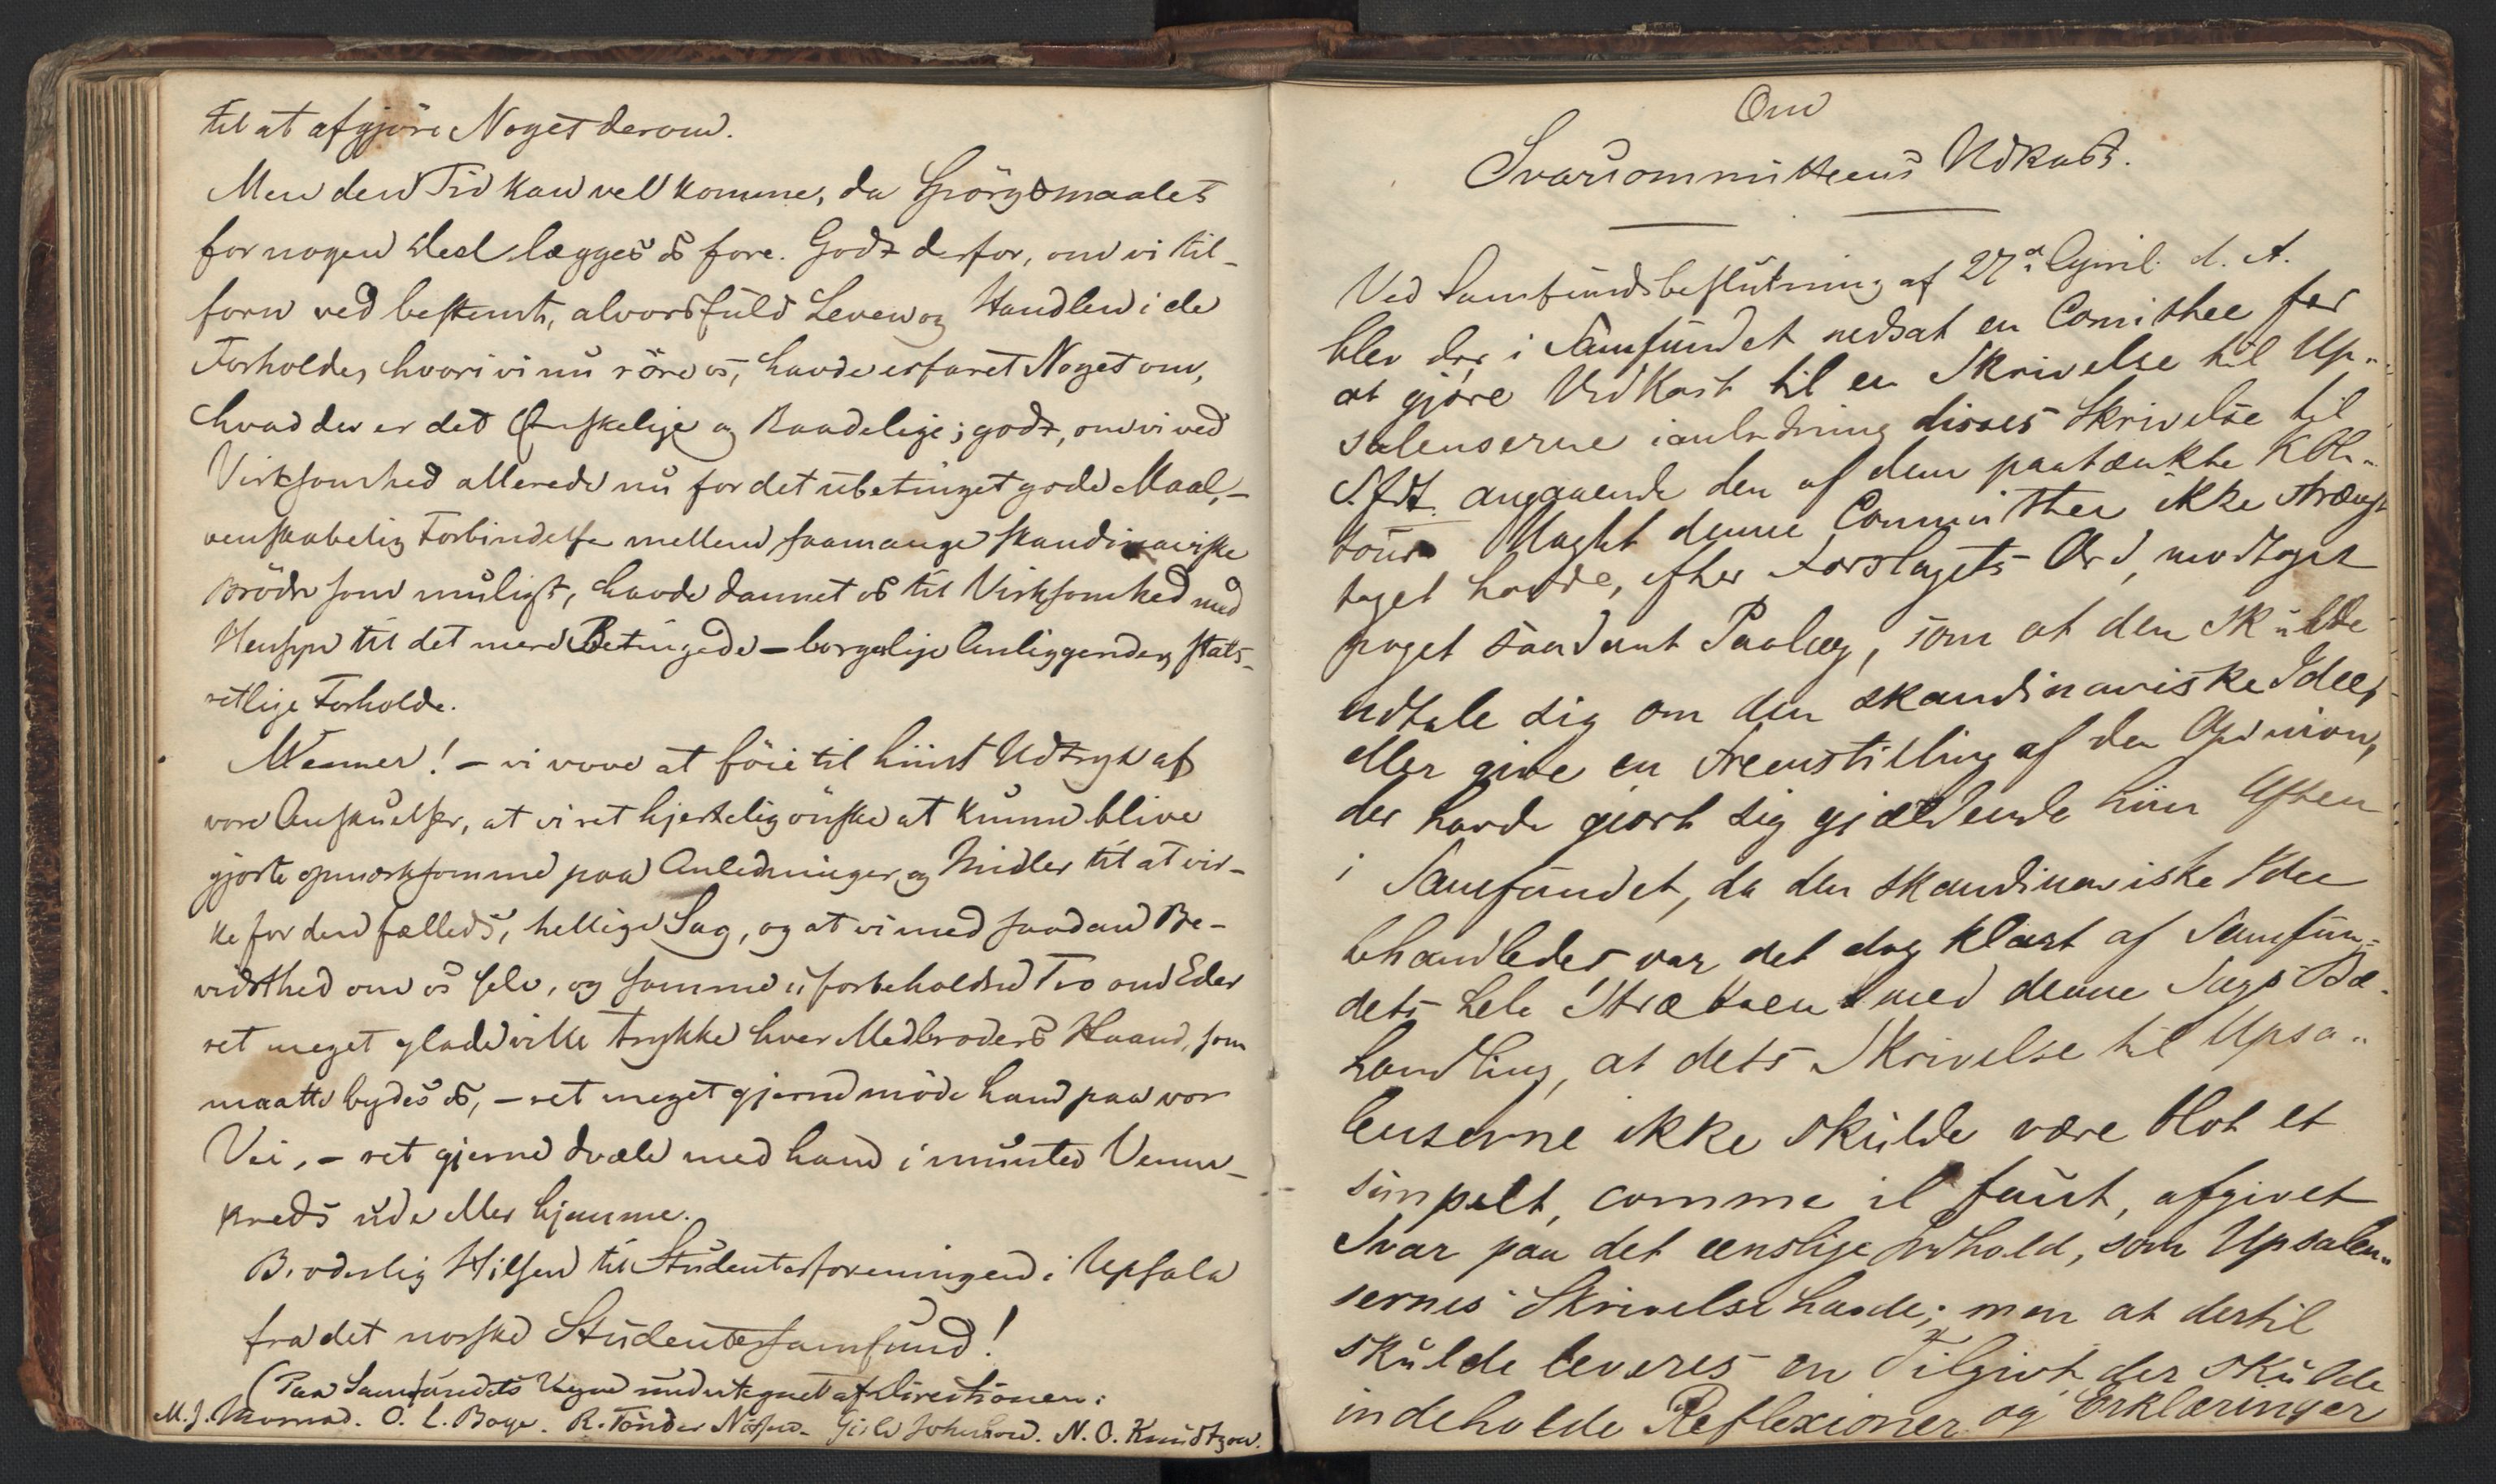 til at afgjöre Noget derom.
Men den Tid kan vel komme, da Spörgsmaalet
for nogen Deel lægges os fore. Godt derfor, om vi til-
forn ved bestemt, alvorsfuld Leven og Handlen i de
Forholde, hvori vi nu röre os, havde erfaret Noget om,
hvad der er det Ønskelige og Raadelige; godt, om vi ved
Virksomhed allerede nu for det ubetinget gode Maal, -
venskabelig Forbindelse mellem saamange skandinaviske
Brödre som muligt, havde dannet os til Virksomhed med
Hensyn til det mere Betingede - borgerlige Anliggender, stats-
retlige Forholde.
Venner! - vi vove at föie til hiint Udtryk af
vore Anskuelser, at vi ret hjertelig önske at kunne blive
gjorte opmærksomme paa Anledninger og Midler til at vir-
ke for den fælleds, hellige Sag, og at vi med saadan Be-
vidsthed om os selv, og samme uforbeholdne Tro om Eder
ret meget glade ville trykke hver Medbroders Haand, som
maatte bydes os, - ret meget gjerne möde ham paa vor
Vei, - ret gjerne dvæle med ham i munter Venne-
kreds ude eller hjemme.
Broderlig Hilsen til Studenterforeningen i Upsala
fra det norske Studentersamfund!
(Paa Samfundets Vegne undertegnet af Directionen:
M. J. Monrad. O. L. Boye. R. Tönder Nissen. Gisle Johnson. N. O. Knudtzon.
Om
Svarcommitteens Udkast.
Ved Samfundsbeslutning af 27de April d. A.
blev der i Samfundet nedsat en Comithee for
at gjöre Udkast til en Skrivelse til Up-
salenserne i anledning disses Skrivelse til
S.fdt. angaaende den af dem paatænkte Kbh-
tour. Uagtet denne Committee ikke strængt
taget havde, efter Forslagets Ord, modtaget
noget saadant Paalæg, som at den skulde
udtale sig om den skandinaviske Idee,
eller give en Fremstilling af den Opinion,
der havde gjort sig gjældende hiin Aften
i Samfundet, da den skandinaviske Idee
behandledes var det dog klart af Samfun-
dets hele Stræben med denne Sags Be-
handling, at dets Skrivelse til Upsa-
lenserne ikke skulde være blot et
simpelt, comme il faut, afgivet
Svar paa det eenslige Indhold, som Upsalen-
sernes Skrivelse havde; men at dertil
skulde leveres en Tilgivt, der skulde
indeholde Reflexioner og Erklæringer